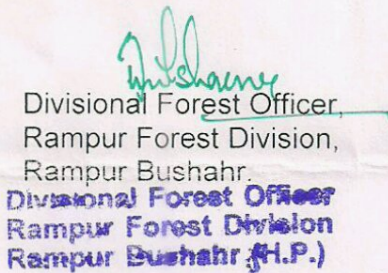 Divisional Forest Officer,
Rampur Forest Division,
Rampur Bushahr.
Divisional Forest Officer
Rampur Forest Division
Rampur Bushahr (H.P.)